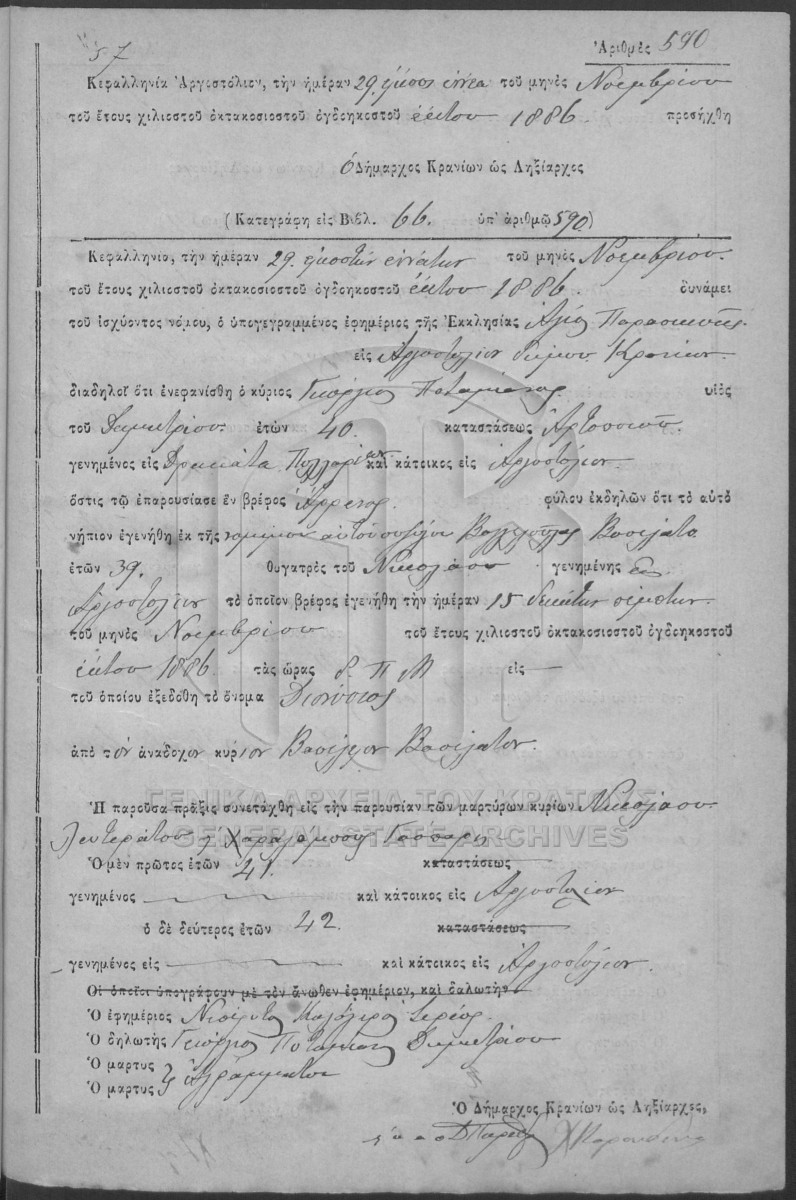 57
Ἀριθμὸς 590
Κεφαλληνία Ἀργοστόλιον, τὴν ἡμέραν 29. εἴκοσι ἐννέα τοῦ μηνὸς Νοεμβρίου
τοῦ ἔτους χιλιοστοῦ ὀκτακοσιοστοῦ ὀγδοηκοστοῦ ἕκτου 1886. προσήχθη
ὁ Δήμαρχος Κρανίων ὡς Ληξίαρχος
(Κατεγράφη εἰς Βιβλ. 66. ὑπ' ἀριθμῷ 590)
Κεφαλληνία, τὴν ἡμέραν 29. εἰκοστὴν ἐννάτην τοῦ μηνὸς Νοεμβρίου.
τοῦ ἔτους χιλιοστοῦ ὀκτακοσιοστοῦ ὀγδοηκοστοῦ ἕκτου 1886. δυνάμει
τοῦ ἰσχύοντος νόμου, ὁ ὑπογεγραμμένος ἐφημέριος τῆς Ἐκκλησίας Ἁγίας Παρασκευῆς
εἰς Ἀργοστόλιον δήμου Κρανίων
διαδηλοῖ ὅτι ἐνεφανίσθη ὁ κύριος Γεώργιος Ποταμιάνος υἱὸς
τοῦ Δημητρίου ἐτῶν 40. καταστάσεως Ἀρτοποιοῦ.
γενημένος εἰς Δρακάτα Πυλλαρέων καὶ κάτοικος εἰς Ἀργοστόλιον.
ὅστις τῷ ἐπαρουσίασε ἓν βρέφος Ἄρρενος. φύλου ἐκδηλῶν ὅτι τὸ αὐτὸ
νήπιον ἐγενήθη ἐκ τῆς νομίμου αὐτοῦ συζύγου Βαγγελούλας Βασιλάτο
ἐτῶν 39. θυγατρὸς τοῦ Νικολάου γενημένης εἰς
Ἀργοστόλιον τὸ ὁποῖον βρέφος ἐγενήθη τὴν ἡμέραν 15 δεκάτην πέμπτην.
τοῦ μηνὸς Νοεμβρίου τοῦ ἔτους χιλιοστοῦ ὀκτακοσιοστοῦ ὀγδοηκοστοῦ
ἕκτου 1886 τὰς ὥρας 8. Π Μ εἰς
τοῦ ὁποίου ἐξεδόθη τὸ ὄνομα Διονύσιος
ἀπὸ τὸν ἀνάδοχον κύριον Βασίλειον Βασιλάτον.
ΓΕΝΙΚΑ ΑΡΧΕΙΑ ΤΟΥ ΚΡΑΤΟΥΣ
GENERAL STATE ARCHIVES
Ἡ παροῦσα πρᾶξις συνετάχθη εἰς τὴν παρουσίαν τῶν μαρτύρων κυρίων Νικολάου
Λευτεράτου ἢ Χαραλάμπους
Ὁ μὲν πρῶτος ἐτῶν 41. καταστάσεως
γενημένος καὶ κάτοικος εἰς Ἀργοστόλιον
ὁ δὲ δεύτερος ἐτῶν 42. καταστάσεως
γενημένος εἰς καὶ κάτοικος εἰς Ἀργοστόλιον.
Οἱ ὁποῖοι ὑπογράφουν μὲ τὸν ἄνωθεν ἐφημέριον, καὶ δαλωτὴν
Ὁ ἐφημέριος ἱερεύς.
Ὁ δηλωτὴς Γεώργιος Ποταμιάνος Δημητρίου
Ὁ μαρτυς
Ὁ μαρτυς } Ἀγράμματοι
Ὁ Δήμαρχος Κρανίων ὡς Ληξίαρχος,